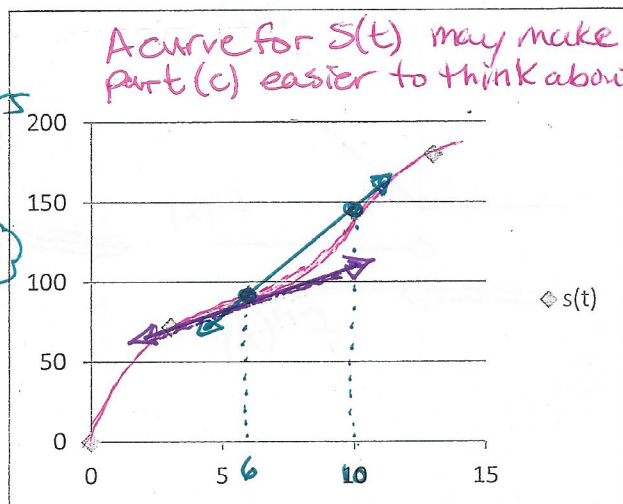 A curve for S(t) may make
part (c) easier to think
200
150
100
50
0
s(t)
0 5 6 10 10 15